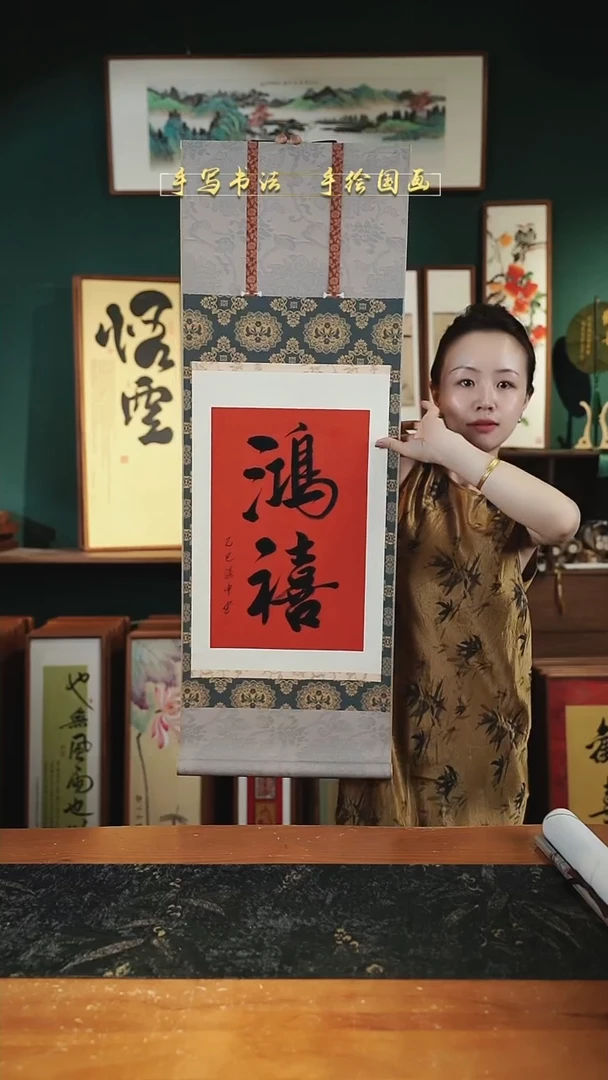 手写书法 手绘国画
悟雲
鴻禧
乙巳
也無風雨也